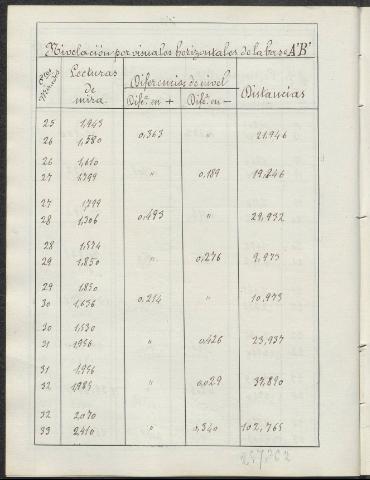 Nivelación por visuales horizontales de la base A'B'
Lecturas de mira. Diferencias de nivel Distancias
Difª en + Difª en –
25 1,943
26 1,580 0,363 " 21,946
26 1,610
27 1,799 " 0,189 19,246
27 1,799
28 1,306 0,493 " 29,932
28 1,574
29 1,850 " 0,276 9,973
29 1,850
30 1,636 0,214 " 10,973
30 1,530
31 1,956 " 0,426 23,937
31 1,956
32 1,985 " 0,029 37,890
32 2,070
33 2,410 " 0,340 102,765